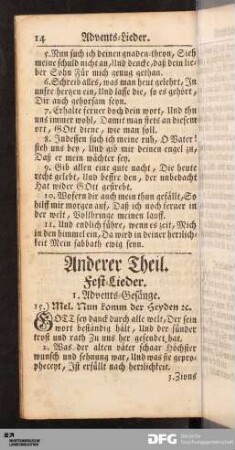 14 Advents-Lieder.
5. Nun such ich deinen gnaden-thron, Sieh
meine schuld nicht an, Und dencke, daß dein lie-
ber Sohn Für mich genug gethan.
6. Schreib alles, was man heut gelehrt, In
unsre hertzen ein, Und lasse die, so es gehört,
Dir auch gehorsam seyn.
7. Erhalte ferner doch dein wort, Und thu
uns immer wohl, Damit man stets an diesem
ort, GOtt diene, wie man soll.
8. Indessen such ich meine ruh, O Vater!
steh uns bey, Und gib mir deinen engel zu,
Daß er mein wächter sey.
9. Gib allen eine gute nacht, Die heute
recht gelebt, Und beßre den, der unbedacht
Hat wider GOtt gestrebt.
10. Wofern dir auch mein thun gefällt, So
hilff mir morgen auf, Daß ich noch ferner in
der welt, Vollbringe meinen lauff.
11. Und endlich führe, wenn es zeit, Mich
in den himmel ein, Da werd in deiner herrlich-
keit Mein sabbath ewig seyn.
Anderer Theil.
Fest-Lieder.
1. Advents-Gesänge.
15.) Mel. Nun komm der Heyden ꝛc.
GOTT sey danck durch alle welt, Der sein
wort beständig hält, Und der sünder
trost und rath Zu uns her gesendet hat.
2. Was der alten väter schaar Höchster
wunsch und sehnung war, Und was sie gepro-
pheceyt, Ist erfüllt nach herrlichkeit.
3. Zions
DFG Deutsche
Forschungsgemeinschaft